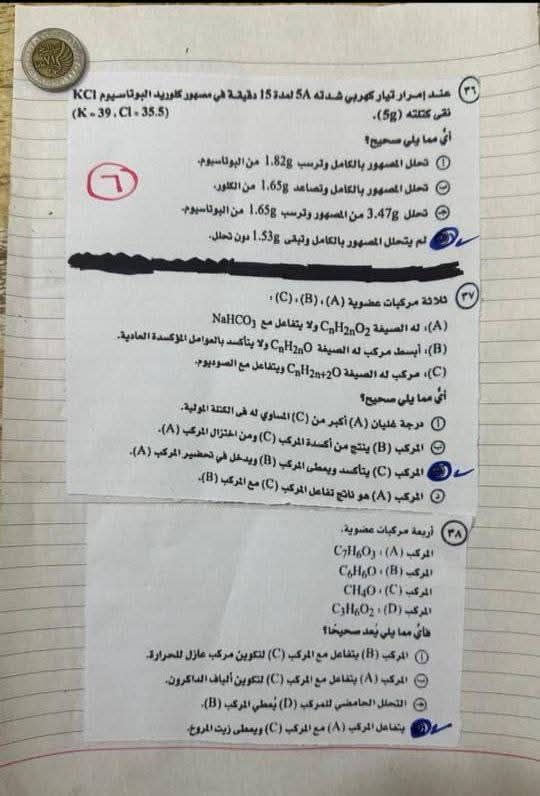 ٣٦ عند إمرار تيار كهربي شدته 5A لمدة 15 دقيقة في مصهور كلوريد البوتاسيوم KCl
نقى كتلته (5g). (K = 39 , Cl = 35.5)
أي مما يلي صحيح؟
أ تحلل المصهور بالكامل وترسب 1.82g من البوتاسيوم.
ب تحلل المصهور بالكامل وتصاعد 1.65g من الكلور.
ج تحلل 3.47g من المصهور وترسب 1.65g من البوتاسيوم.
لم يتحلل المصهور بالكامل وتبقى 1.53g دون تحلل.
٦
٣٧ ثلاثة مركبات عضوية (A) ، (B) ، (C) :
(A)، له الصيغة CnH2nO2 ولا يتفاعل مع NaHCO3
(B)، أبسط مركب له الصيغة CnH2nO ولا يتأكسد بالعوامل المؤكسدة العادية.
(C)، مركب له الصيغة CnH2n+2O ويتفاعل مع الصوديوم.
أي مما يلي صحيح؟
أ درجة غليان (A) أكبر من (C) المساوي له في الكتلة المولية.
ب المركب (B) ينتج من أكسدة المركب (C) ومن اختزال المركب (A).
المركب (C) يتأكسد ويعطى المركب (B) ويدخل في تحضير المركب (A).
د المركب (A) هو ناتج تفاعل المركب (C) مع المركب (B).
٣٨ أربعة مركبات عضوية.
المركب (A) : C7H6O3
المركب (B) : C6H6O
المركب (C) : CH4O
المركب (D) : C3H6O2
فأي مما يلي يُعد صحيحًا؟
أ المركب (B) يتفاعل مع المركب (C) لتكوين مركب عازل للحرارة.
ب المركب (A) يتفاعل مع المركب (C) لتكوين ألياف الداكرون.
ج التحلل الحامضي للمركب (D) يُعطي المركب (B).
يتفاعل المركب (A) مع المركب (C) ويعطى زيت المروخ.